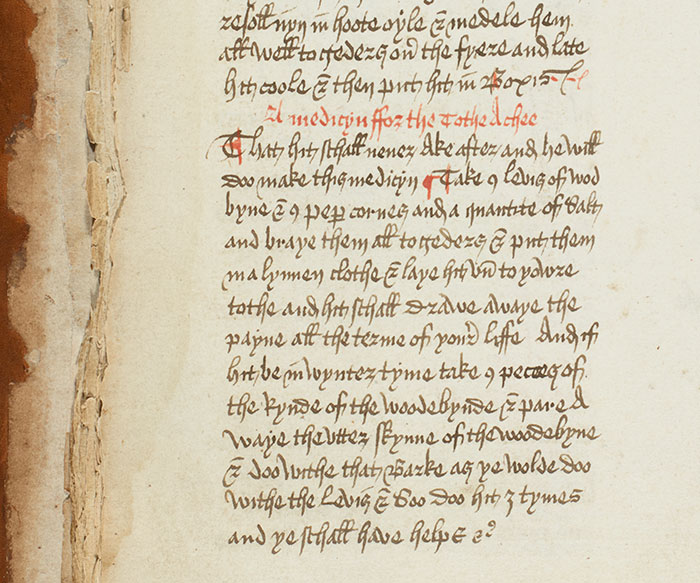 resoll uyn in hoote oyle & medele hem
all well to geders on the fyere and late
hit coole & then putt hit in Boxis
A medicyn ffor the Tothe Achee
That hit schall never Ake after and he will
doo make this medicyn Take 9 levis of wod
byne & 9 pepper cornes and a quantite of Salt
and braye them all to geders & putt them
in a lynnen clothe & laye hit un to yowre
tothe and hit schall drawe awaye the
payne all the terme of your liffe And if
hit be in wynter tyme take 9 peceeg of
the Rynde of the woodebynde & pare A
waye the utter skynne of the woodebyne
& doo withe that Barke as ye wolde doo
withe the Levis & Soo doo hit 3 tymes
and ye schall have helpe &c